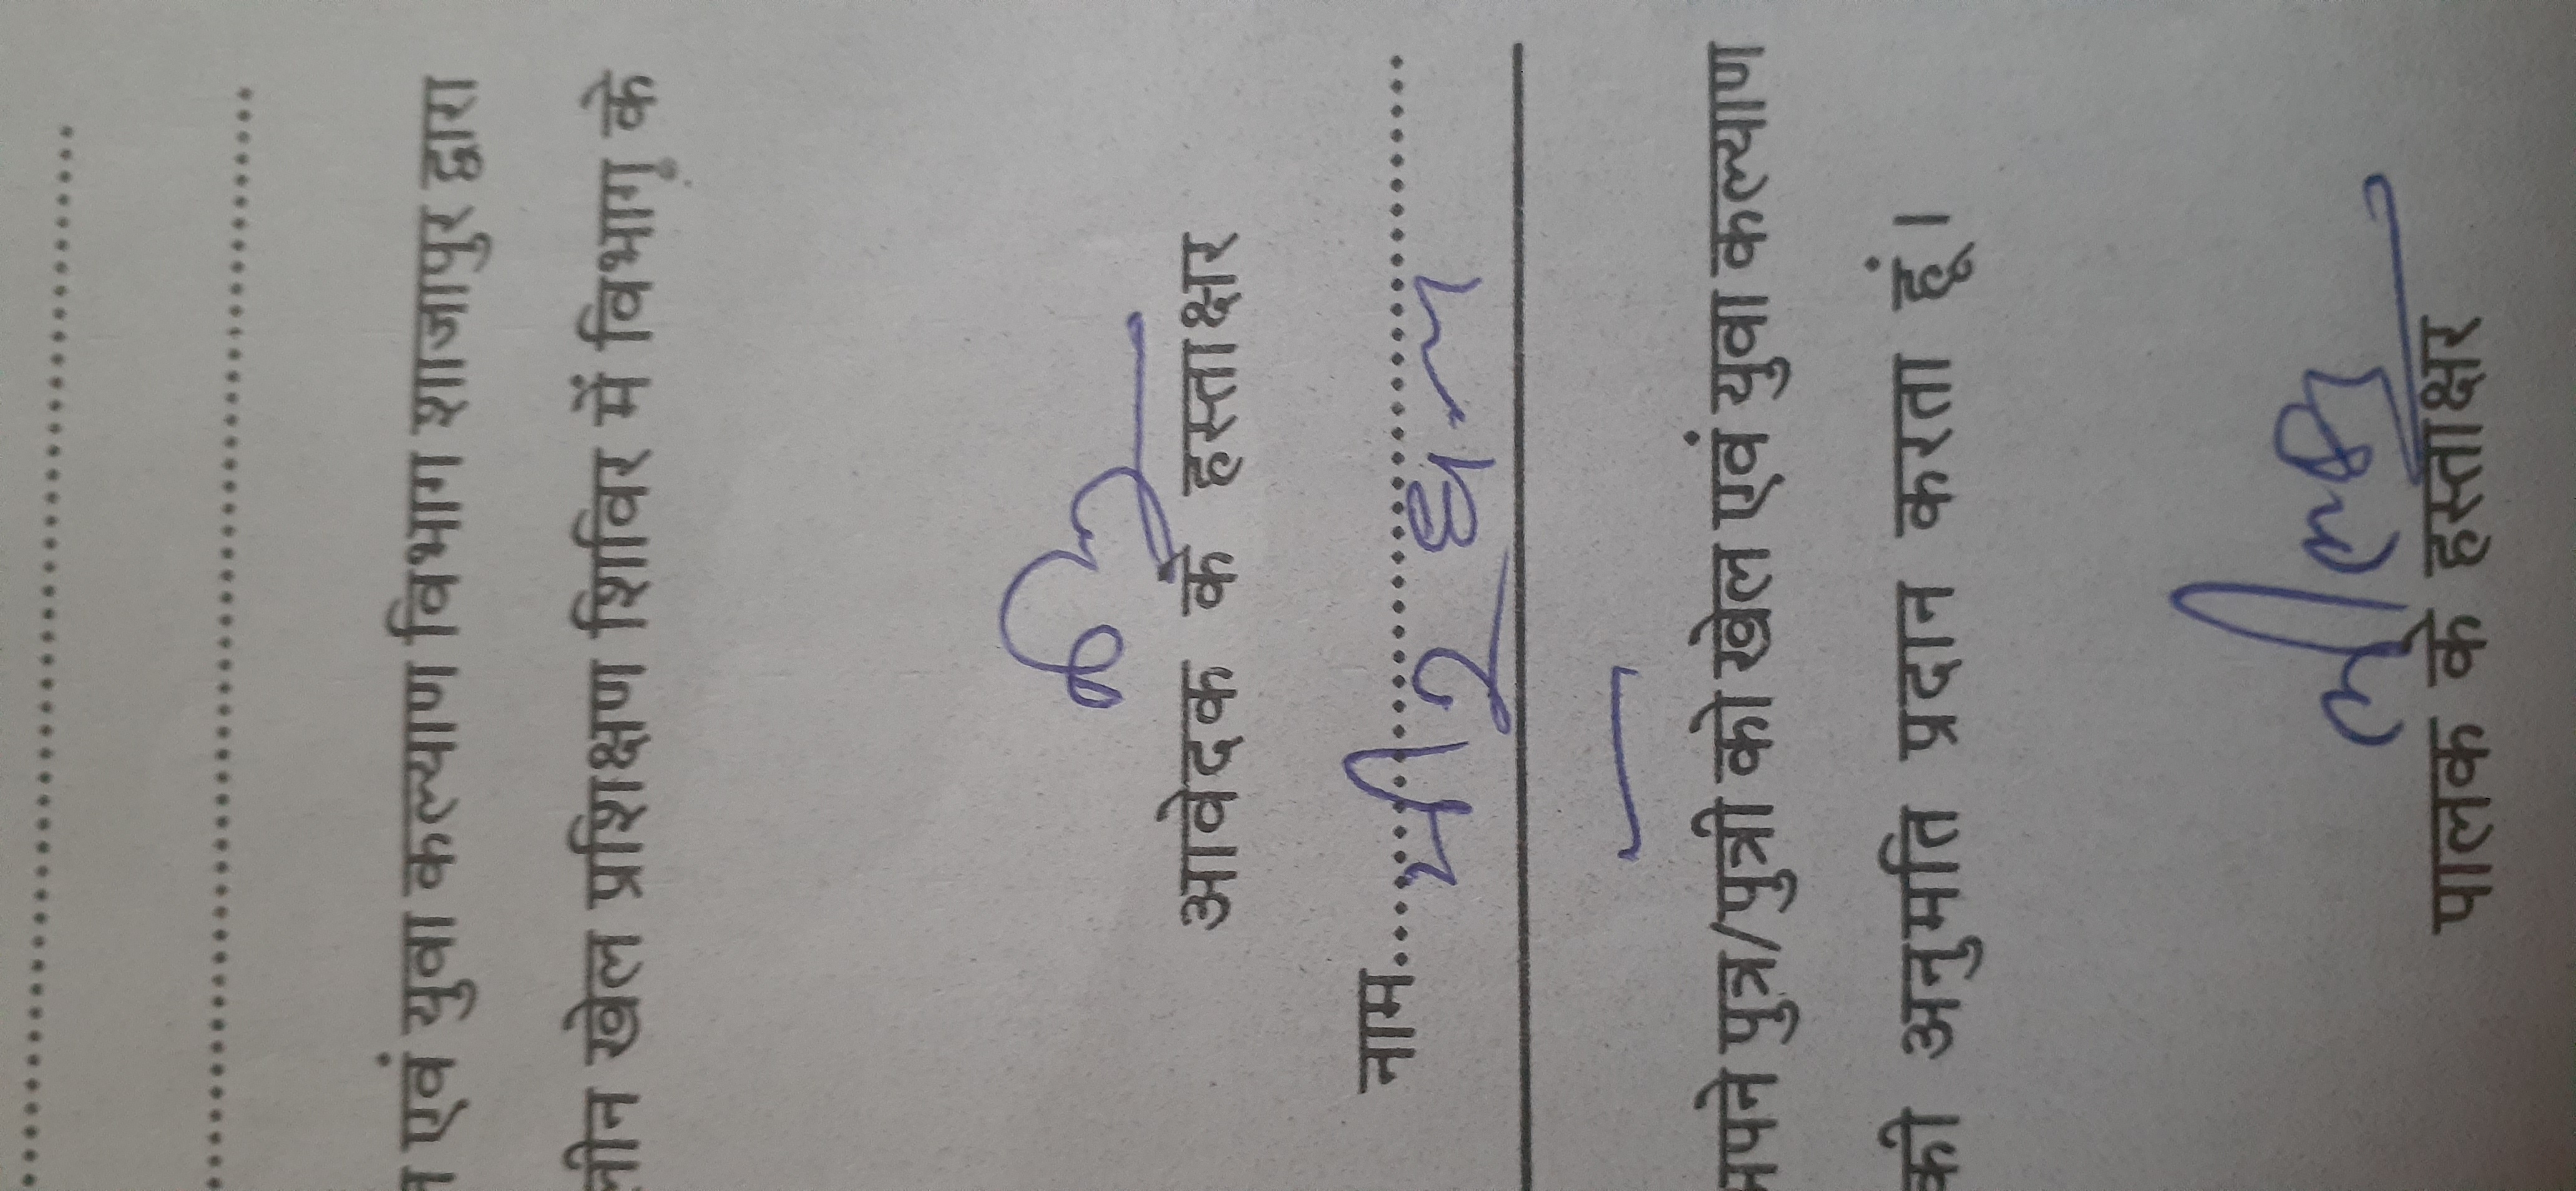 एवं युवा कल्याण विभाग शाजापुर द्वारा
खेल प्रशिक्षण शिविर में विभाग के
आवेदक के हस्ताक्षर
नाम
पुत्र/पुत्री को खेल एवं युवा कल्याण
अनुमति प्रदान करता हूं।
पालक के हस्ताक्षर